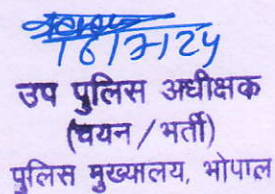 उप पुलिस अधीक्षक
(चयन / भर्ती)
पुलिस मुख्यालय, भोपाल